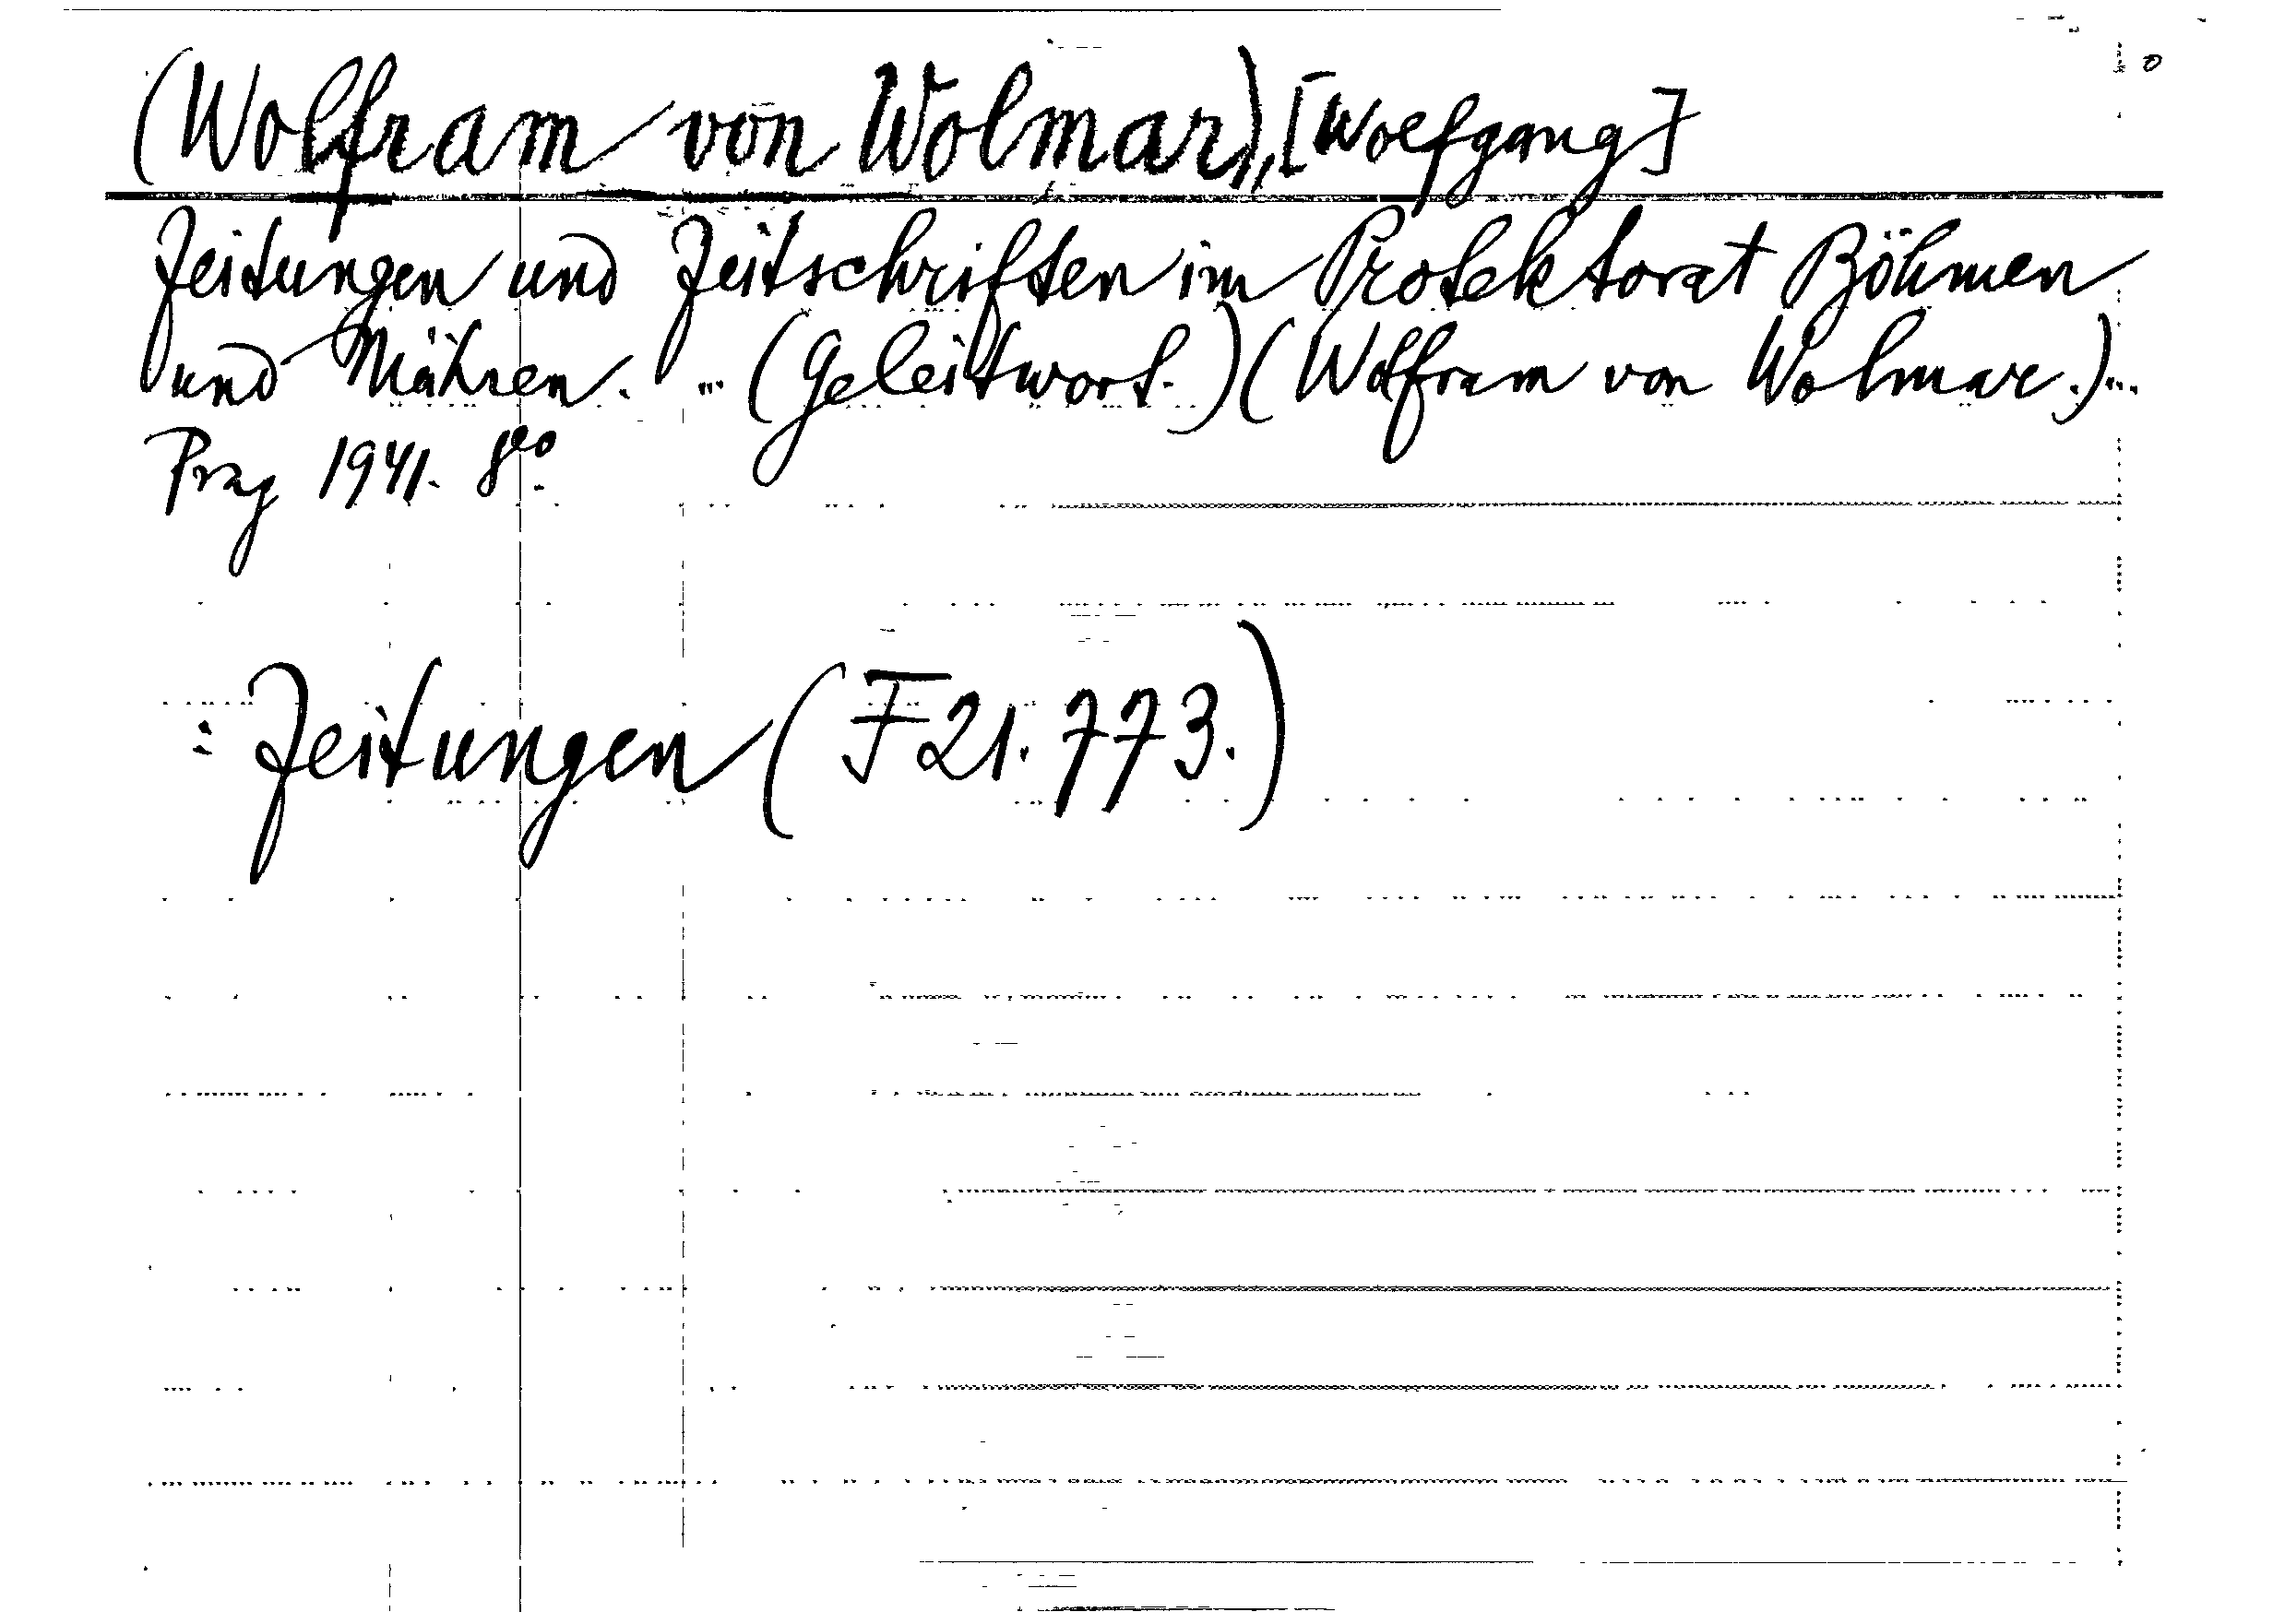 (Wolfram von Wolmar), [Wolfgang]
Zeitungen und Zeitschriften im Protektorat Böhmen
und Mähren. ... (Geleitwort.) (Wolfram von Wolmar.)...
Prag 1941. 8vo.
: Zeitungen (F 21.773.)